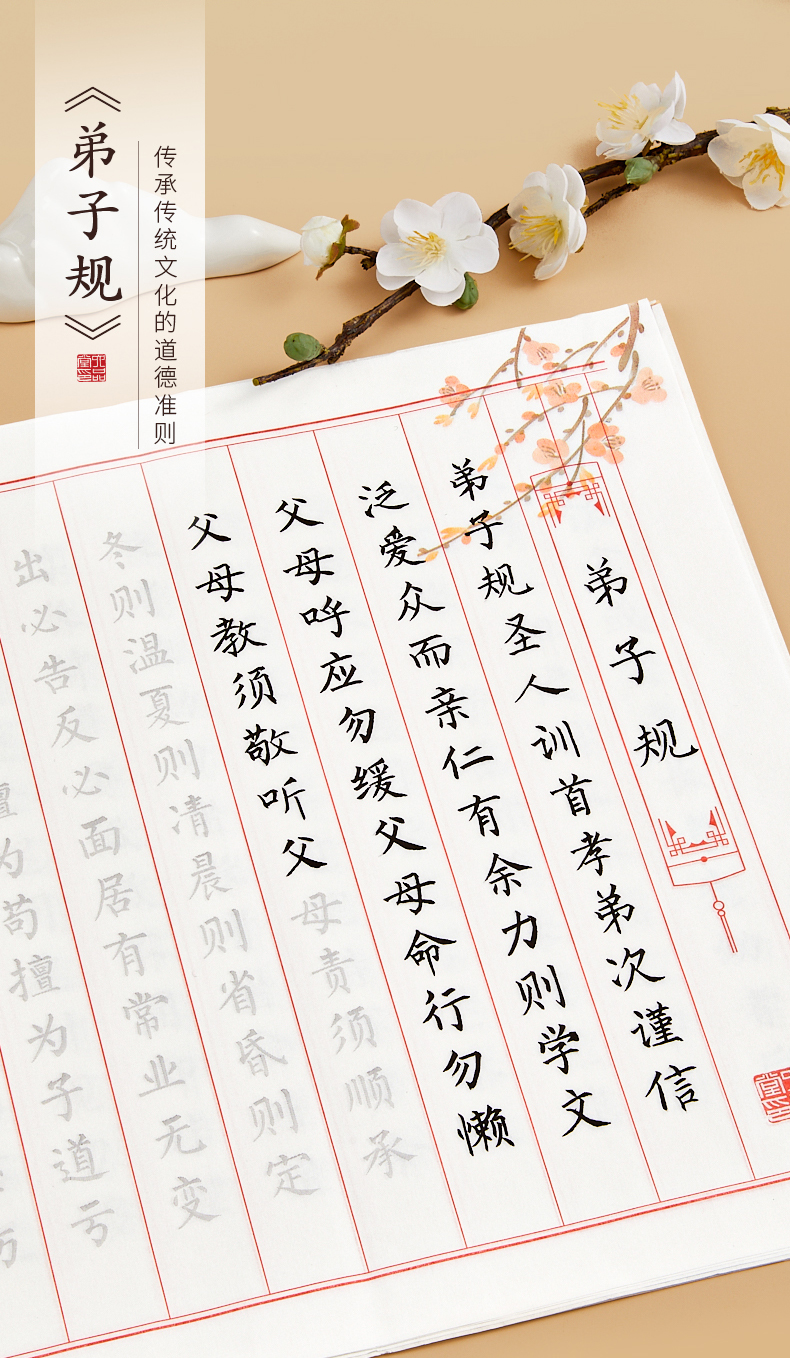 《弟子规》
传承传统文化的道德准则
弟子规
弟子规圣人训首孝弟次谨信
泛爱众而亲仁有余力则学文
父母呼应勿缓父母命行勿懒
父母教须敬听父母责须顺承
冬则温夏则清晨则省昏则定
出必告反必面居有常业无变
擅为苟擅为子道亏